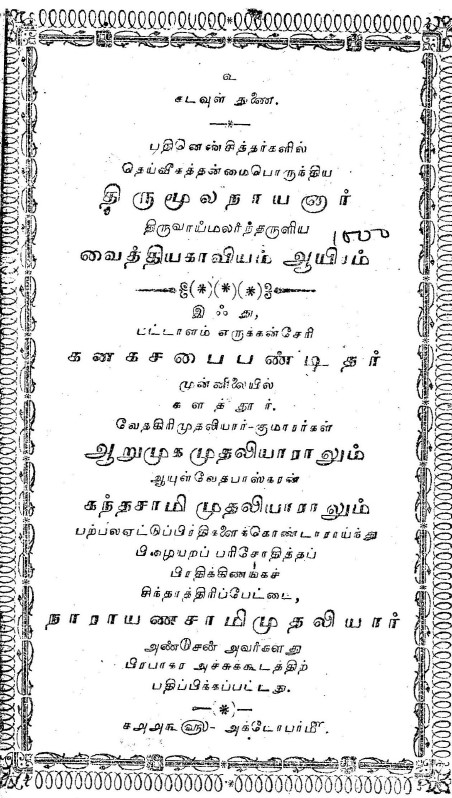 உ
கடவுள் துணை.
பதினெண்சித்தர்களில்
தெய்வீகத்தன்மைபொருந்திய
திருமூலநாயனார்
திருவாய்மலர்ந்தருளிய
வைத்தியகாவியம் ஆயிரம்
இஃது,
பட்டாளம் எருக்கன்சேரி
கனகசபைபண்டிதர்
முன்னிலையில்
களத்தூர்.
வேதகிரிமுதலியார்-குமாரர்கள்
ஆறுமுகமுதலியாராலும்
ஆயுள்வேதபாஸ்கரன்
கந்தசாமி முதலியாராலும்
பற்பலஏட்டுப்பிரதிகளைக்கொண்டாராய்ந்து
பிழையறப் பரிசோதித்தப்
பிரதிக்கிணங்கச்
சிந்தாத்திரிப்பேட்டை,
நாராயணசாமிமுதலியார்
அண்சேன் அவர்களது
பிரபாகர அச்சுக்கூடத்திற்
பதிப்பிக்கப்பட்டது.
௧௮௮௬ ௵ - அக்டோபர்௴.